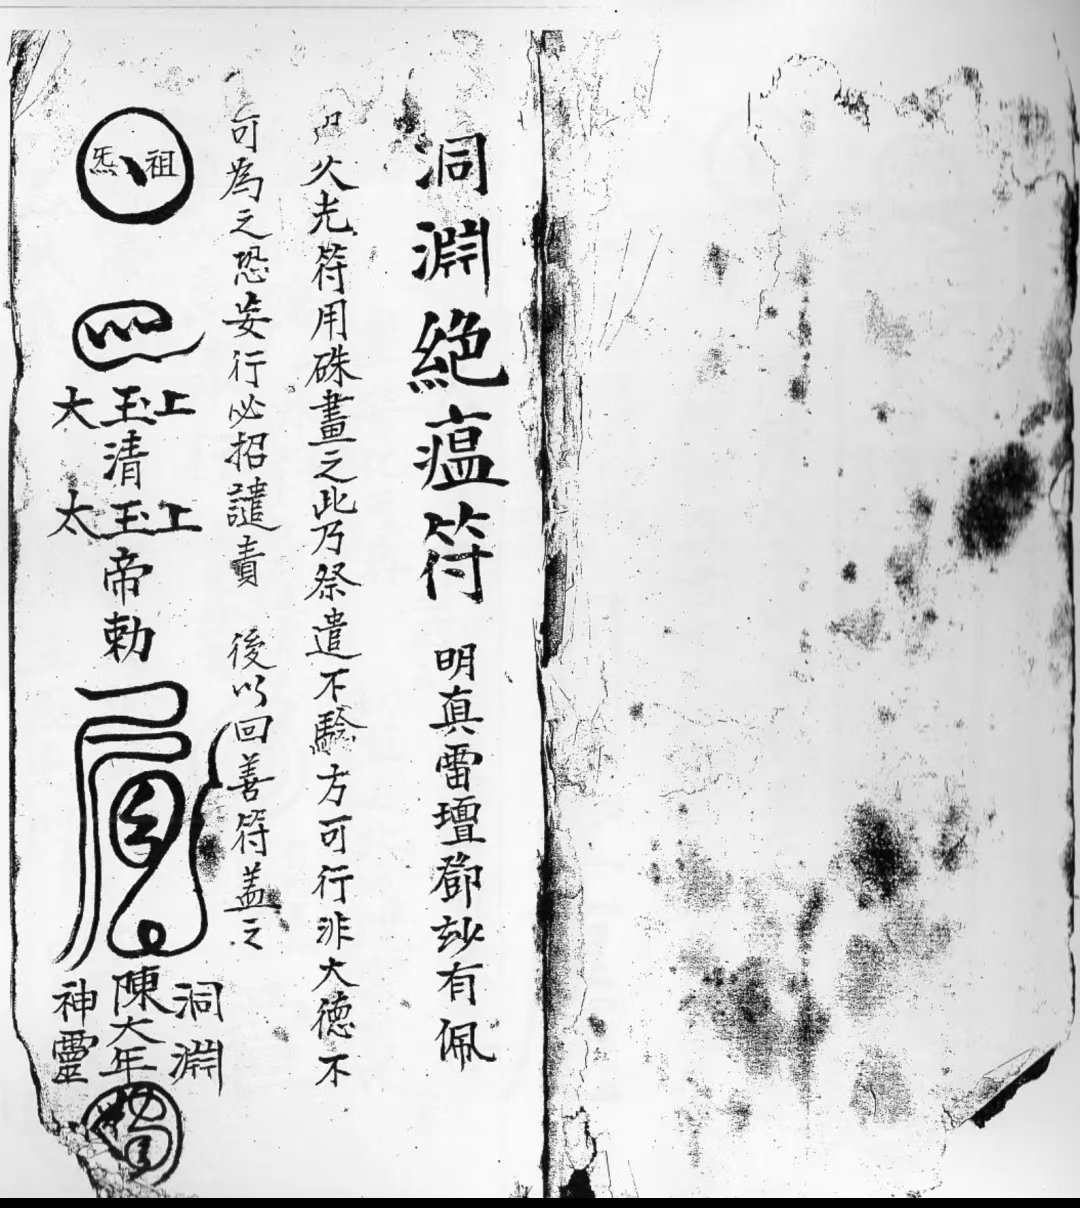 洞淵絶瘟符 明真雷壇鄧玅有佩
光符用硃畫之此乃祭遣不驗方可行非大德不
可為之恐妄行必招譴責 後以回善符盖之
祖炁
上玉太
清
上玉太
帝勅
洞淵
陳大年
神靈